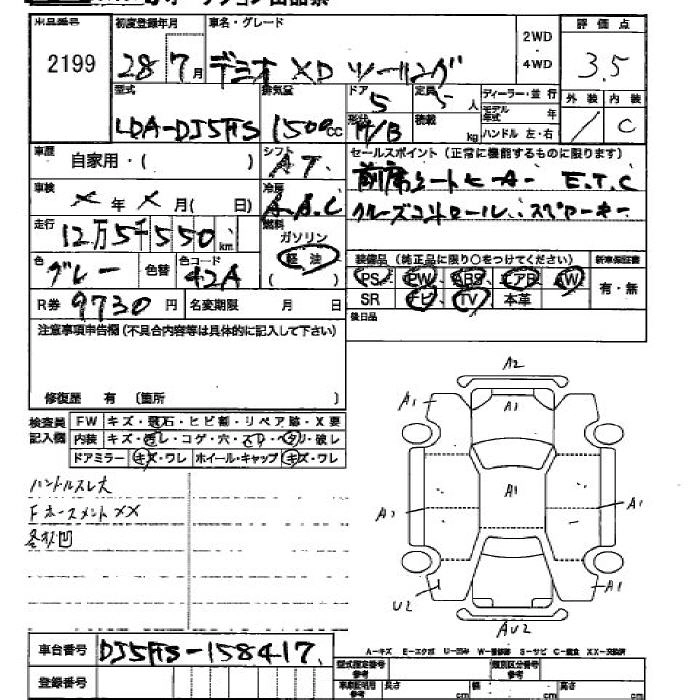 出品番号
2199
初度登録年月
28 7月
車名・グレード
デミオ XD ツーリング
2WD
・
4WD
評価点
3.5
型式
LDA-DJ5FS
排気量
1500cc
ドア
5
形状
H/B
定員
5人
積載
kg
ディーラー・並行
モデル年式 年
ハンドル 左・右
外装 内装
C
車歴
自家用・( )
シフト
AT
セールスポイント(正常に機能するものに限ります)
前席シートヒーター E.T.C
クルーズコントロール・スペアーキー
車検
× 年 × 月( 日)
冷房
A.A.C
走行
12万5千550km
燃料
ガソリン
軽油
( )
色
グレー
色替
色コード
42A
装備品(純正品に限り○をつけてください)
新車保証書
PS PW ABS エアB AW
有・無
SR ナビ TV 本革
R券 9730円
名変期限 月 日
後日品
注意事項申告欄(不具合内容等は具体的に記入して下さい)
修復歴 有 〔箇所
検査員記入欄
FW キズ・飛石・ヒビ割・リペア跡・X要
内装 キズ・汚レ・コゲ・穴・スレ・ヘタリ・破レ
ドアミラー キズ・ワレ ホイール・キャップ キズ・ワレ
ハンドルスレ大
Fホースメント××
各状凹
A2
A1
A1
A1
A1
A1
U2
A1
AU2
車台番号
DJ5FS-158417
登録番号
A-キズ E-エクボ U-凹W W-補修跡 S-サビ C-腐食 XX-交換済
型式指定番号
類別区分番号
長さ cm
幅 cm
高さ cm